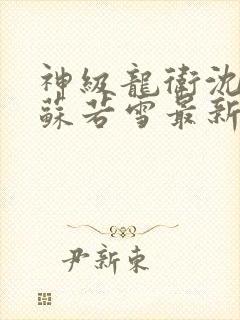 神級龍衛沈
蘇若雪最新
尹新東